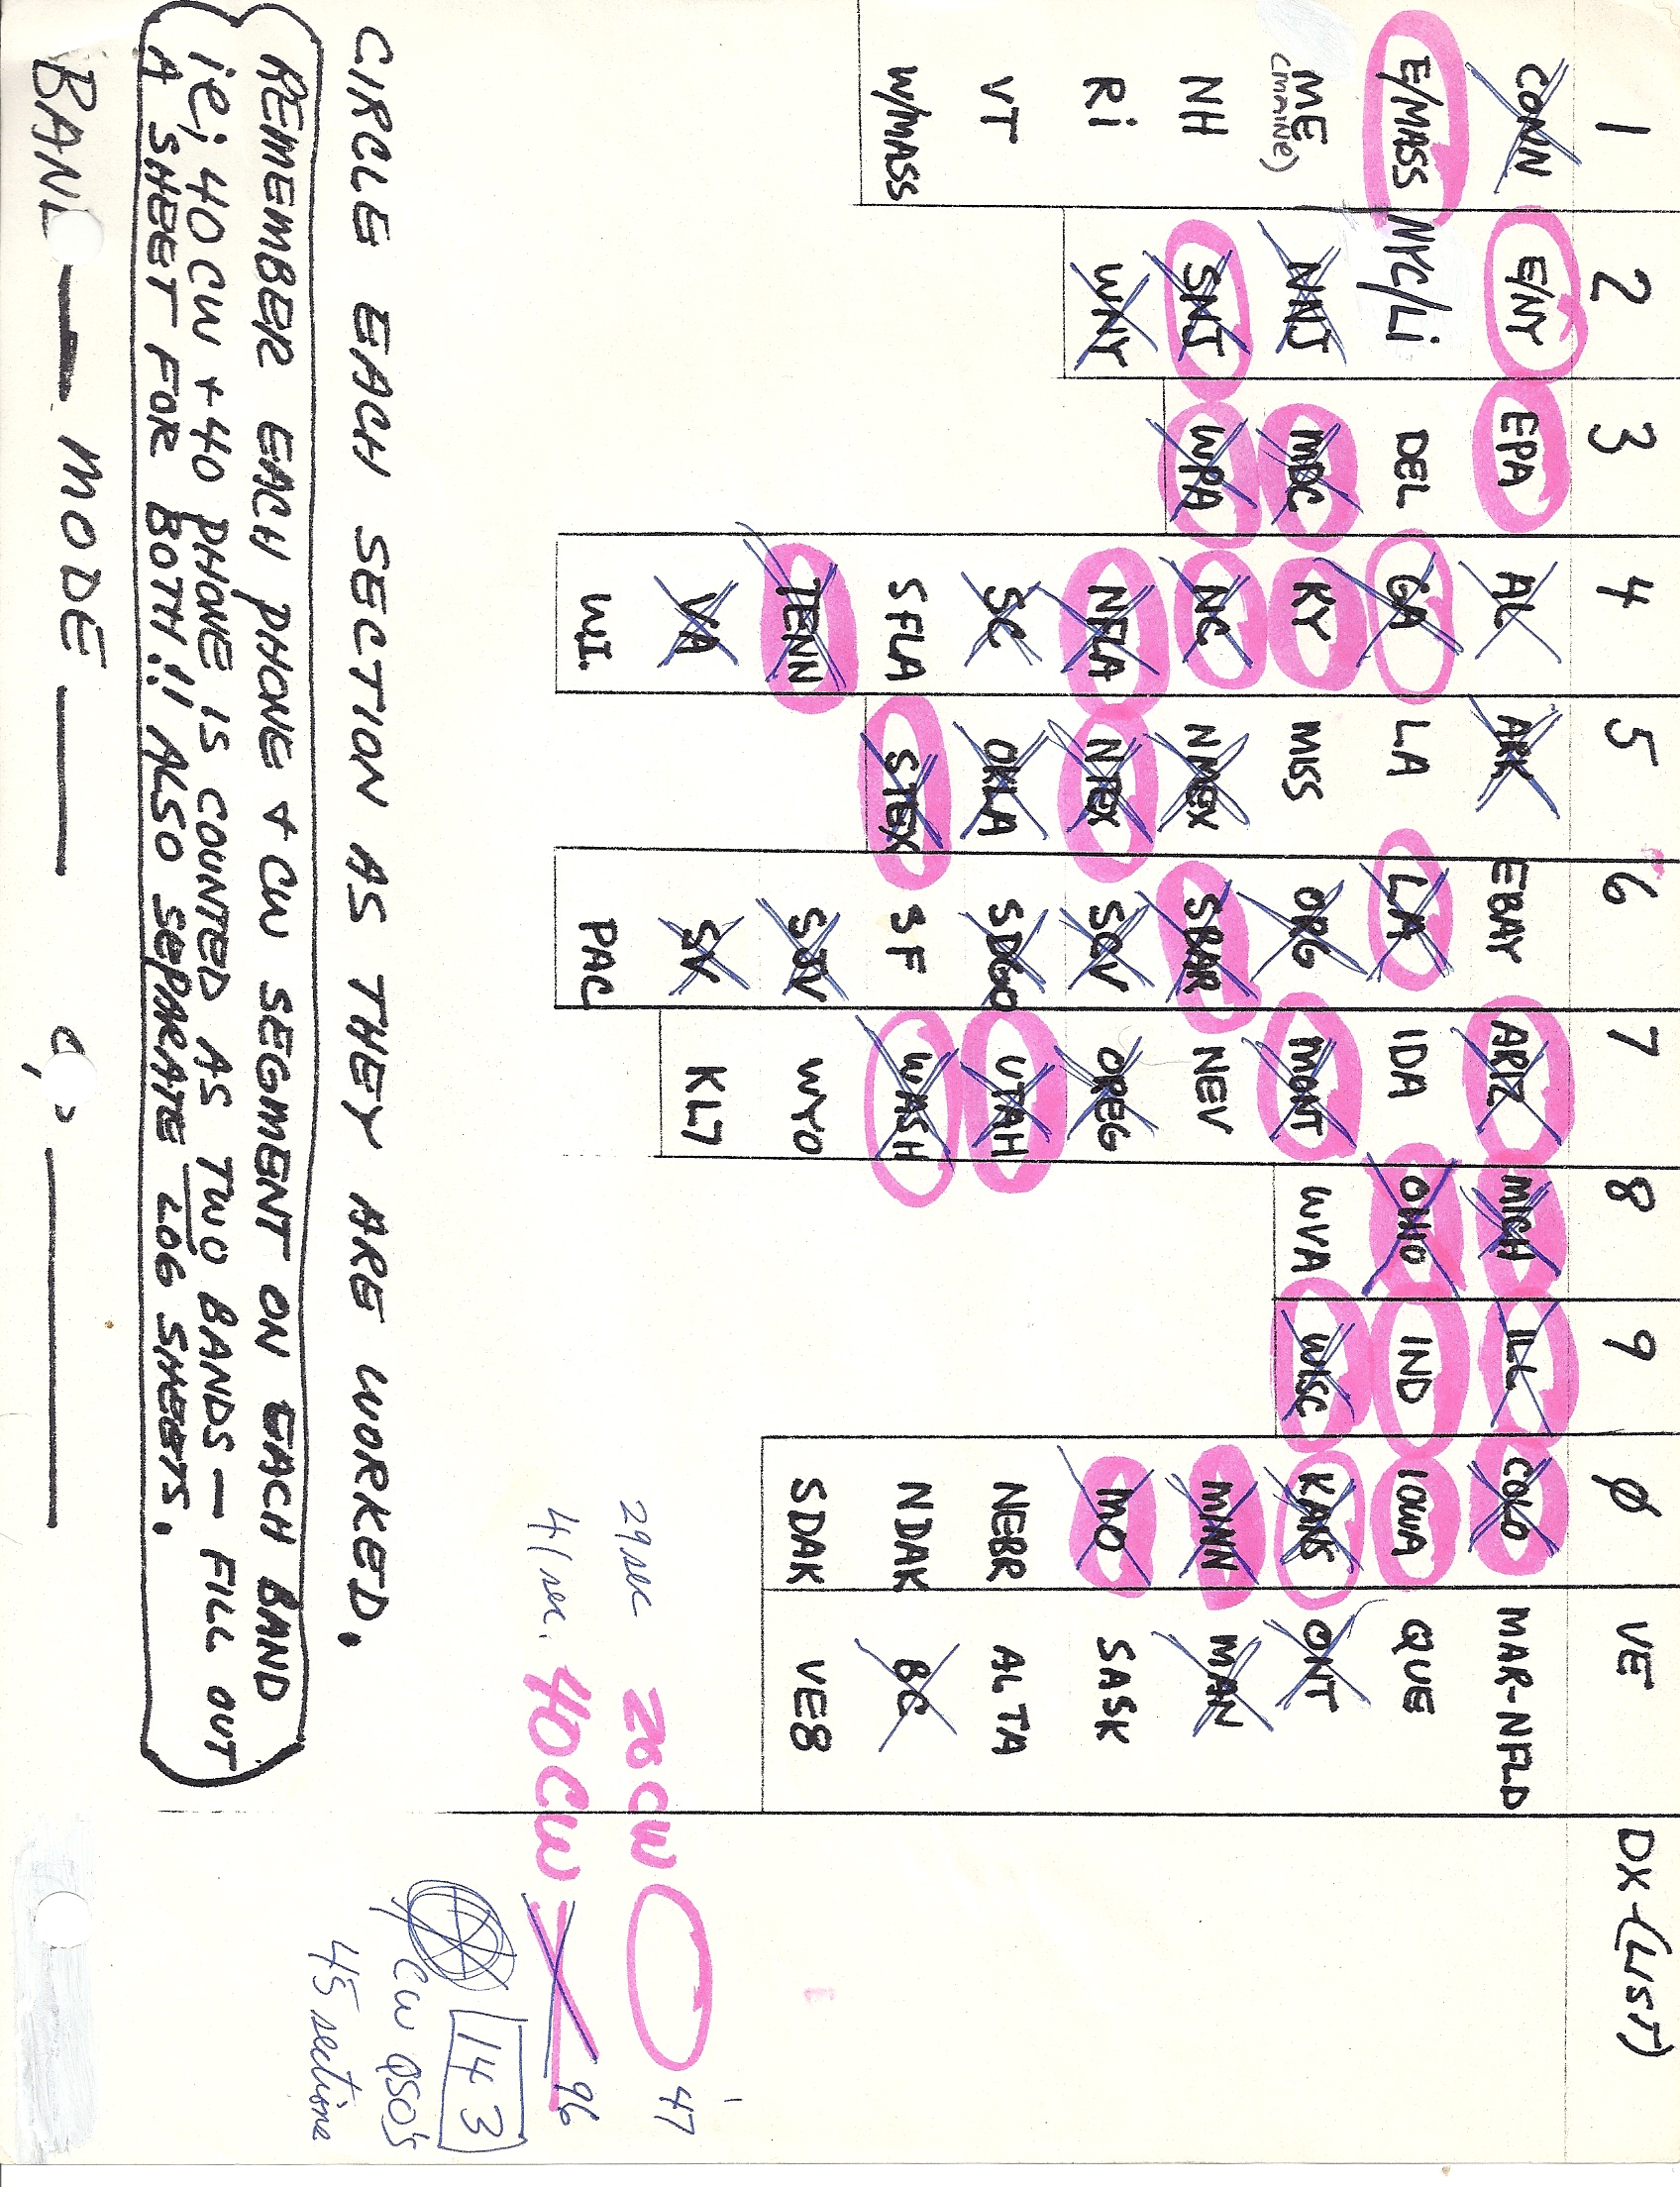 1 2 3 4 5 6 7 8 9 Ø VE DX-(LIST)
CONN E/NY EPA AL ARK EBAY ARIZ MICH ILL COLO MAR-NFLD
E/MASS NYC/Li DEL GA LA LA IDA OHIO IND IOWA QUE
ME NNJ MDC KY MISS ORG MONT WVA WISC KANS ONT
(MAINE)
NH SNJ WPA NC NMEX SBAR NEV MINN MAN
Ri WNY NFLA NTEX SCV OREG MO SASK
VT SC OKLA SDGO UTAH NEBR ALTA
W/MASS SFLA STEX SF WASH NDAK BC
TENN SJV WYO SDAK VE8
VA SV KL7
W.I. PAC
29 sec 20 CW 47
41 sec. 40 CW 96
143
CW QSO's
45 sections
CIRCLE EACH SECTION AS THEY ARE WORKED.
REMEMBER EACH PHONE + CW SEGMENT ON EACH BAND
ie; 40 CW + 40 PHONE IS COUNTED AS TWO BANDS — FILL OUT
A SHEET FOR BOTH!!! ALSO SEPARATE LOG SHEETS.
BAND — MODE